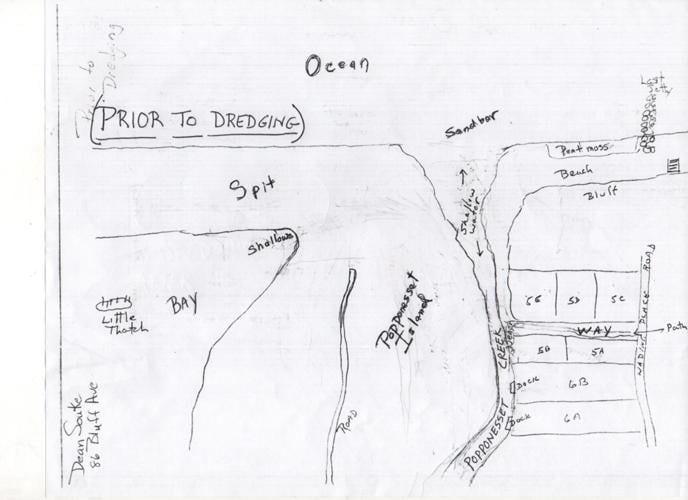 Prior to
Dredging
Ocean
Last
Jetty
(PRIOR TO DREDGING)
Sandbar
Peat moss
Beach
Bluff
Spit
Shallow
water
Shallows
BAY
Little
Thatch
Popponesset
Island
ROAD
6C 5D 5C
WAY
Path
5B 5A
DOCK
6B
DOCK
6A
POPPONESSET CREEK
WADING PLACE ROAD
86 Bluff Ave